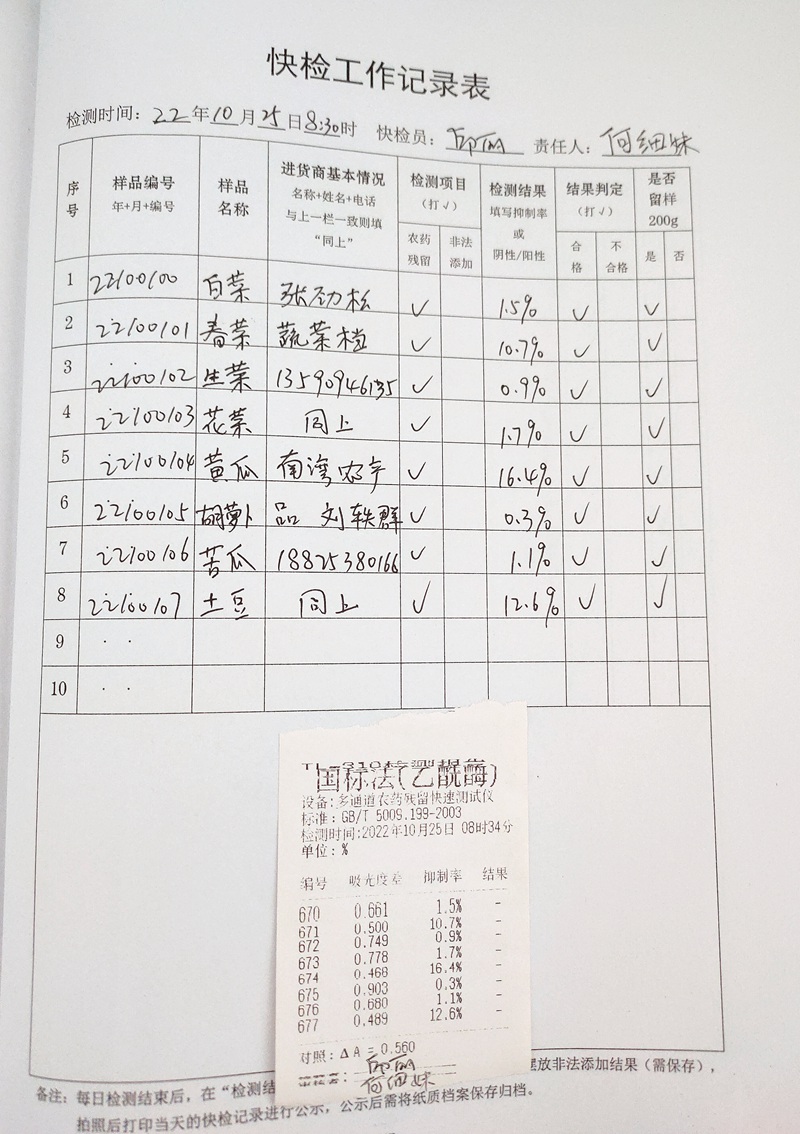 快检工作记录表
检测时间：22年10月25日8:30时 快检员：邱丽 责任人：何细妹
序号 样品编号 年+月+编号 样品名称 进货商基本情况 名称+姓名+电话 与上一栏一致则填“同上” 检测项目（打√） 农药残留 非法添加 检测结果 填写抑制率或阴性/阳性 结果判定（打√） 合格 不合格 是否留样200g 是 否
1 22100100 白菜 张劲松 √ 1.5% √ √
2 22100101 春菜 蔬菜档 √ 10.7% √ √
3 22100102 生菜 13590946135 √ 0.9% √ √
4 22100103 花菜 同上 √ 1.7% √ √
5 22100104 黄瓜 南湾农产 √ 16.4% √ √
6 22100105 胡萝卜 品 刘轶群 √ 0.3% √ √
7 22100106 苦瓜 18825380166 √ 1.1% √ √
8 22100107 土豆 同上 √ 12.6% √ √
9
10
国标法(乙酰酶)
设备:多通道农药残留快速测试仪
标准: GB/T 5009.199-2003
检测时间:2022年10月25日 08时34分
单位: %
编号 吸光度差 抑制率 结果
670 0.661 1.5% -
671 0.500 10.7% -
672 0.749 0.9% -
673 0.778 1.7% -
674 0.468 16.4% -
675 0.903 0.3% -
676 0.680 1.1% -
677 0.489 12.6% -
对照: ΔA = 0.560
邱丽
何细妹
备注：每日检测结束后，在“检测结 摆放非法添加结果（需保存），
拍照后打印当天的快检记录进行公示，公示后需将纸质档案保存归档。